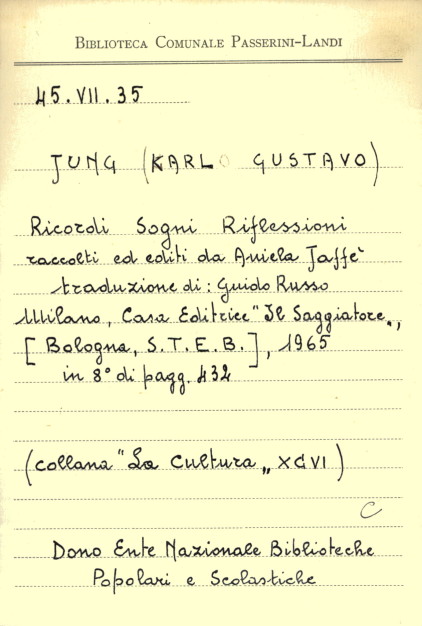 BIBLIOTECA COMUNALE PASSERINI-LANDI
45.VII.35
JUNG (KARLO GUSTAVO)
Ricordi Sogni Riflessioni
raccolti ed editi da Aniela Jaffè
traduzione di: Guido Russo
Milano, Casa Editrice "Il Saggiatore„,
[Bologna, S.T.E.B.], 1965
in 8° di pagg. 432
(collana "La Cultura„ XCVI)
C
Dono Ente Nazionale Biblioteche
Popolari e Scolastiche